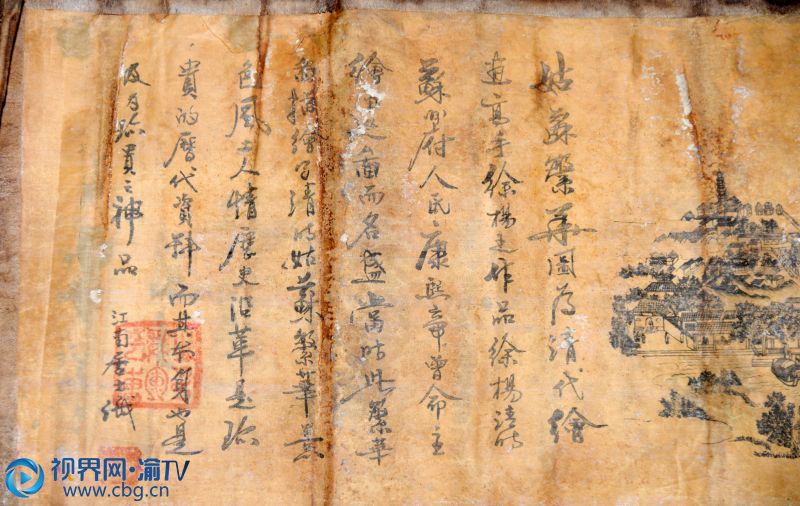 姑蘇繁华圖为清代繪
画高手徐楊之作品徐楊清時
蘇州府人民康熙帝曾命主
繪 之畫而名盛當时此繁華
描繪了清時姑蘇繁華景
色風土人情歷史沿革是珍
貴的曆代資料而其本身也是
極为珍貴之神品
江南居士
视界网·渝TV
www.cbg.cn